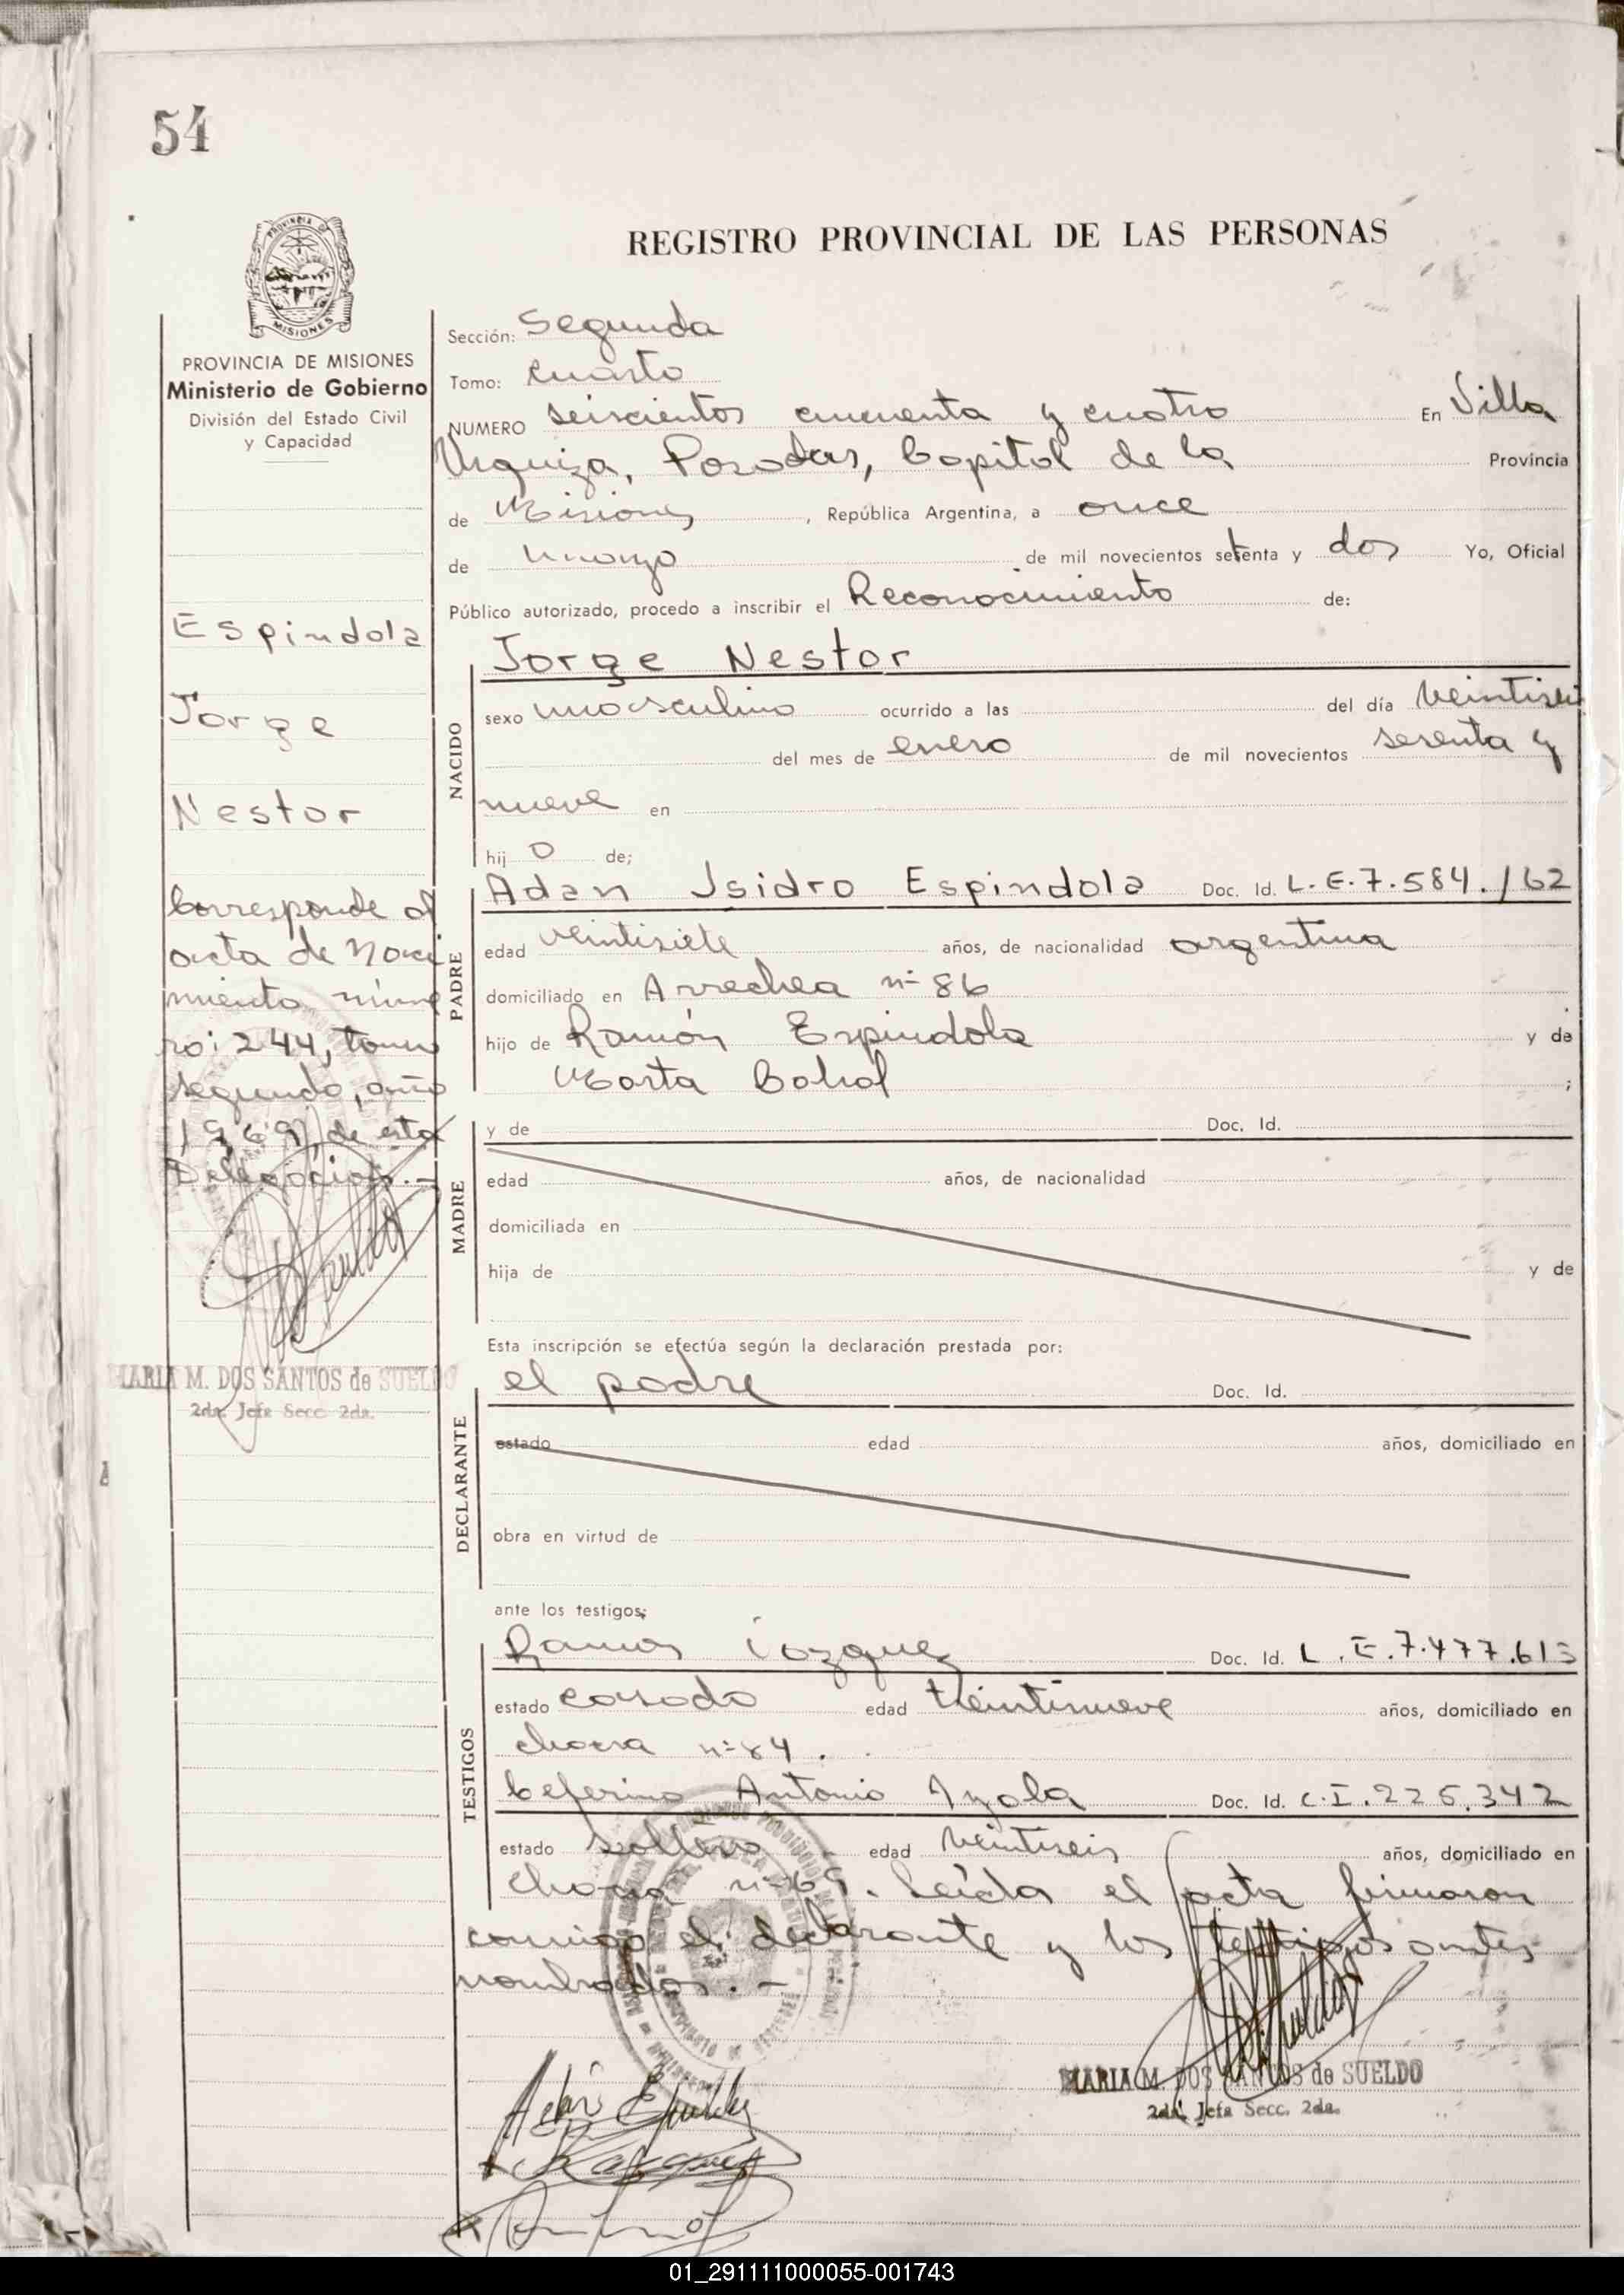 54
PROVINCIA DE MISIONES
Ministerio de Gobierno
División del Estado Civil
y Capacidad
Espindola
Jorge
Nestor
Corresponde al
acta de naci
miento núme
ro: 244, tomo
segundo, año
1969, de esta
Delegación.-
MARIA M. DOS SANTOS de SUELDO
2da. Jefa Secc. 2da.
REGISTRO PROVINCIAL DE LAS PERSONAS
Sección: Segunda
Tomo: cuarto
NUMERO seiscientos cincuenta y cuatro En Villa
Urquiza, Posadas, Capital de la Provincia
de Misiones, República Argentina, a once
de marzo de mil novecientos setenta y dos Yo, Oficial
Público autorizado, procedo a inscribir el Reconocimiento de:
Jorge Nestor
NACIDO
sexo masculino ocurrido a las del día veintiseis
del mes de enero de mil novecientos sesenta y
nueve en
hijo de;
PADRE
Adan Isidro Espindola Doc. Id. L.E.7.584./62
edad veintisiete años, de nacionalidad argentina
domiciliado en Arrechea nº 86
hijo de Ramón Espindola y de
Marta ;
MADRE
y de Doc. Id.
edad años, de nacionalidad
domiciliada en
hija de y de
Esta inscripción se efectúa según la declaración prestada por:
el padre Doc. Id.
DECLARANTE
estado edad años, domiciliado en
obra en virtud de
ante los testigos;
TESTIGOS
Ramos Doc. Id. L.E.7.477.613
estado casado edad treintinueve años, domiciliado en
chacra nº 84.
Ceferino Antonio Ayala Doc. Id. C.I.226.342
estado soltero edad veintiseis años, domiciliado en
chacra nº 69. Leída el acta firmaron
conmigo el declarante y los testigos antes
nombrados.-
MARIA M. DOS SANTOS de SUELDO
2da. Jefa Secc. 2da.
01_291111000055-001743